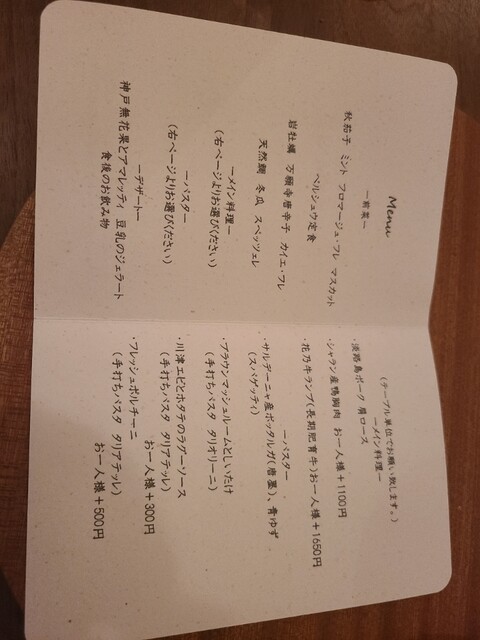 Menu
ー前菜ー
秋茄子 ミント フロマージュ・フレ マスカット
ペルシュウ定食
岩牡蠣 万願寺唐辛子 カイエ・フレ
天然鯛 冬瓜 スペッツェレ
ーメイン料理ー
(右ページよりお選びください)
ーパスター
(右ページよりお選びください)
ーデザートー
神戸無花果とアマレッティ 豆乳のジェラート
食後のお飲み物
(テーブル単位でお願い致します。)
ーメイン料理ー
・淡路島ポーク 肩ロース
・シャラン産鴨胸肉 お一人様+1100円
・花乃牛ランプ(長期肥育牛)お一人様+1650円
ーパスター
・サルデーニャ産ボッタルガ(唐墨)、青ゆず
(スパゲッティ)
・ブラウンマッシュルームとしいたけ
(手打ちパスタ タリオリーニ)
・川津エビとホタテのラグーソース
(手打ちパスタ タリアテッレ)
お一人様+300円
・フレッシュポルチーニ
(手打ちパスタ タリアテッレ)
お一人様+500円